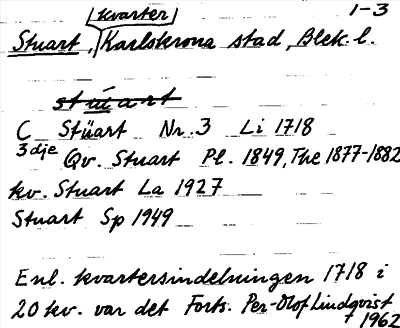 kvarter 1-3
Stuart, Karlskrona stad, Blek. l.
stúart
C Stüart Nr. 3 Li 1718
3dje Qv. Stuart Pl. 1849, The 1877-1882
kv. Stuart La 1927
Stuart Sp 1949
Enl. kvartersindelningen 1718 i
20 kv. var det Forts. Per-Olof Lindqvist
† 1962